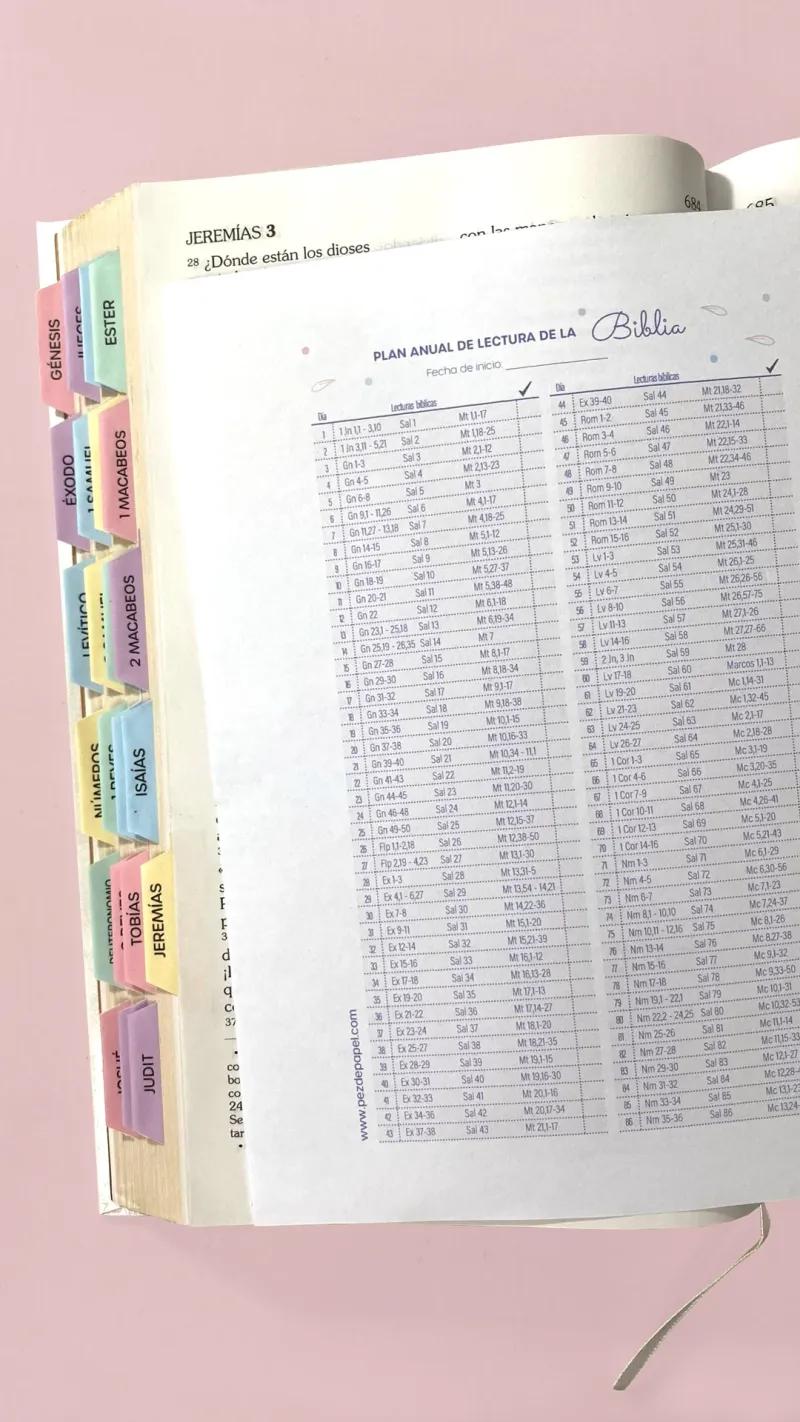 JEREMÍAS 3
684
685
28 ¿Dónde están los dioses
con las
PLAN ANUAL DE LECTURA DE LA Biblia
Fecha de inicio:
Día Lecturas bíblicas ✓
1 1 Jn 1,1 - 3,10 Sal 1 Mt 1,1-17
2 1 Jn 3,11 - 5,21 Sal 2 Mt 1,18-25
3 Gn 1-3 Sal 3 Mt 2,1-12
4 Gn 4-5 Sal 4 Mt 2,13-23
5 Gn 6-8 Sal 5 Mt 3
6 Gn 9,1 - 11,26 Sal 6 Mt 4,1-17
7 Gn 11,27 - 13,18 Sal 7 Mt 4,18-25
8 Gn 14-15 Sal 8 Mt 5,1-12
9 Gn 16-17 Sal 9 Mt 5,13-26
10 Gn 18-19 Sal 10 Mt 5,27-37
11 Gn 20-21 Sal 11 Mt 5,38-48
12 Gn 22 Sal 12 Mt 6,1-18
13 Gn 23,1 - 25,18 Sal 13 Mt 6,19-34
14 Gn 25,19 - 26,35 Sal 14 Mt 7
15 Gn 27-28 Sal 15 Mt 8,1-17
16 Gn 29-30 Sal 16 Mt 8,18-34
17 Gn 31-32 Sal 17 Mt 9,1-17
18 Gn 33-34 Sal 18 Mt 9,18-38
19 Gn 35-36 Sal 19 Mt 10,1-15
20 Gn 37-38 Sal 20 Mt 10,16-33
21 Gn 39-40 Sal 21 Mt 10,34 - 11,1
22 Gn 41-43 Sal 22 Mt 11,2-19
23 Gn 44-45 Sal 23 Mt 11,20-30
24 Gn 46-48 Sal 24 Mt 12,1-14
25 Gn 49-50 Sal 25 Mt 12,15-37
26 Flp 1,1-2,18 Sal 26 Mt 12,38-50
27 Flp 2,19 - 4,23 Sal 27 Mt 13,1-30
28 Ex 1-3 Sal 28 Mt 13,31-5
29 Ex 4,1 - 6,27 Sal 29 Mt 13,54 - 14,21
30 Ex 7-8 Sal 30 Mt 14,22-36
31 Ex 9-11 Sal 31 Mt 15,1-20
32 Ex 12-14 Sal 32 Mt 15,21-39
33 Ex 15-16 Sal 33 Mt 16,1-12
34 Ex 17-18 Sal 34 Mt 16,13-28
35 Ex 19-20 Sal 35 Mt 17,1-13
36 Ex 21-22 Sal 36 Mt 17,14-27
37 Ex 23-24 Sal 37 Mt 18,1-20
38 Ex 25-27 Sal 38 Mt 18,21-35
39 Ex 28-29 Sal 39 Mt 19,1-15
40 Ex 30-31 Sal 40 Mt 19,16-30
41 Ex 32-33 Sal 41 Mt 20,1-16
42 Ex 34-36 Sal 42 Mt 20,17-34
43 Ex 37-38 Sal 43 Mt 21,1-17
Día Lecturas bíblicas ✓
44 Ex 39-40 Sal 44 Mt 21,18-32
45 Rom 1-2 Sal 45 Mt 21,33-46
46 Rom 3-4 Sal 46 Mt 22,1-14
47 Rom 5-6 Sal 47 Mt 22,15-33
48 Rom 7-8 Sal 48 Mt 22,34-46
49 Rom 9-10 Sal 49 Mt 23
50 Rom 11-12 Sal 50 Mt 24,1-28
51 Rom 13-14 Sal 51 Mt 24,29-51
52 Rom 15-16 Sal 52 Mt 25,1-30
53 Lv 1-3 Sal 53 Mt 25,31-46
54 Lv 4-5 Sal 54 Mt 26,1-25
55 Lv 6-7 Sal 55 Mt 26,26-56
56 Lv 8-10 Sal 56 Mt 26,57-75
57 Lv 11-13 Sal 57 Mt 27,1-26
58 Lv 14-16 Sal 58 Mt 27,27-66
59 2 Jn, 3 Jn Sal 59 Mt 28
60 Lv 17-18 Sal 60 Marcos 1,1-13
61 Lv 19-20 Sal 61 Mc 1,14-31
62 Lv 21-23 Sal 62 Mc 1,32-45
63 Lv 24-25 Sal 63 Mc 2,1-17
64 Lv 26-27 Sal 64 Mc 2,18-28
65 1 Cor 1-3 Sal 65 Mc 3,1-19
66 1 Cor 4-6 Sal 66 Mc 3,20-35
67 1 Cor 7-9 Sal 67 Mc 4,1-25
68 1 Cor 10-11 Sal 68 Mc 4,26-41
69 1 Cor 12-13 Sal 69 Mc 5,1-20
70 1 Cor 14-16 Sal 70 Mc 5,21-43
71 Nm 1-3 Sal 71 Mc 6,1-29
72 Nm 4-5 Sal 72 Mc 6,30-56
73 Nm 6-7 Sal 73 Mc 7,1-23
74 Nm 8,1 - 10,10 Sal 74 Mc 7,24-37
75 Nm 10,11 - 12,16 Sal 75 Mc 8,1-26
76 Nm 13-14 Sal 76 Mc 8,27-38
77 Nm 15-16 Sal 77 Mc 9,1-32
78 Nm 17-18 Sal 78 Mc 9,33-50
79 Nm 19,1 - 22,1 Sal 79 Mc 10,1-31
80 Nm 22,2 - 24,25 Sal 80 Mc 10,32-53
81 Nm 25-26 Sal 81 Mc 11,1-14
82 Nm 27-28 Sal 82 Mc 11,15-33
83 Nm 29-30 Sal 83 Mc 12,1-27
84 Nm 31-32 Sal 84 Mc 12,28-
85 Nm 33-34 Sal 85 Mc 13,1-23
86 Nm 35-36 Sal 86 Mc 13,24-
www.pezdepapel.com
GÉNESIS
JUECES
ESTER
ÉXODO
1 SAMUEL
1 MACABEOS
LEVÍTICO
2 MACABEOS
NÚMEROS
1 REYES
ISAÍAS
DEUTERONOMIO
TOBÍAS
JEREMÍAS
JOSUÉ
JUDIT
37
co
bo
co
24
Se
tar